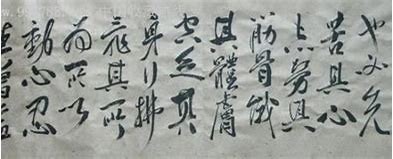 也必先
苦其心
志勞其
筋骨餓
其體膚
空乏其
身行拂
亂其所
為所以
動心忍